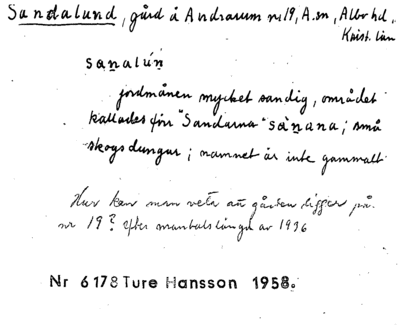 Sandalund, gård å Andrarum nr 19, A.sn, Albo hd,
Krist. län
sa̱nalún
jordmånen mycket sandig, området
kallades förr "Sandarna" sà̱nana; små
skogsdungar; namnet är inte gammalt
Hur kan man veta att gården ligger på
nr 19? efter mantalslängd av 1936
Nr 6178 Ture Hansson 1958.